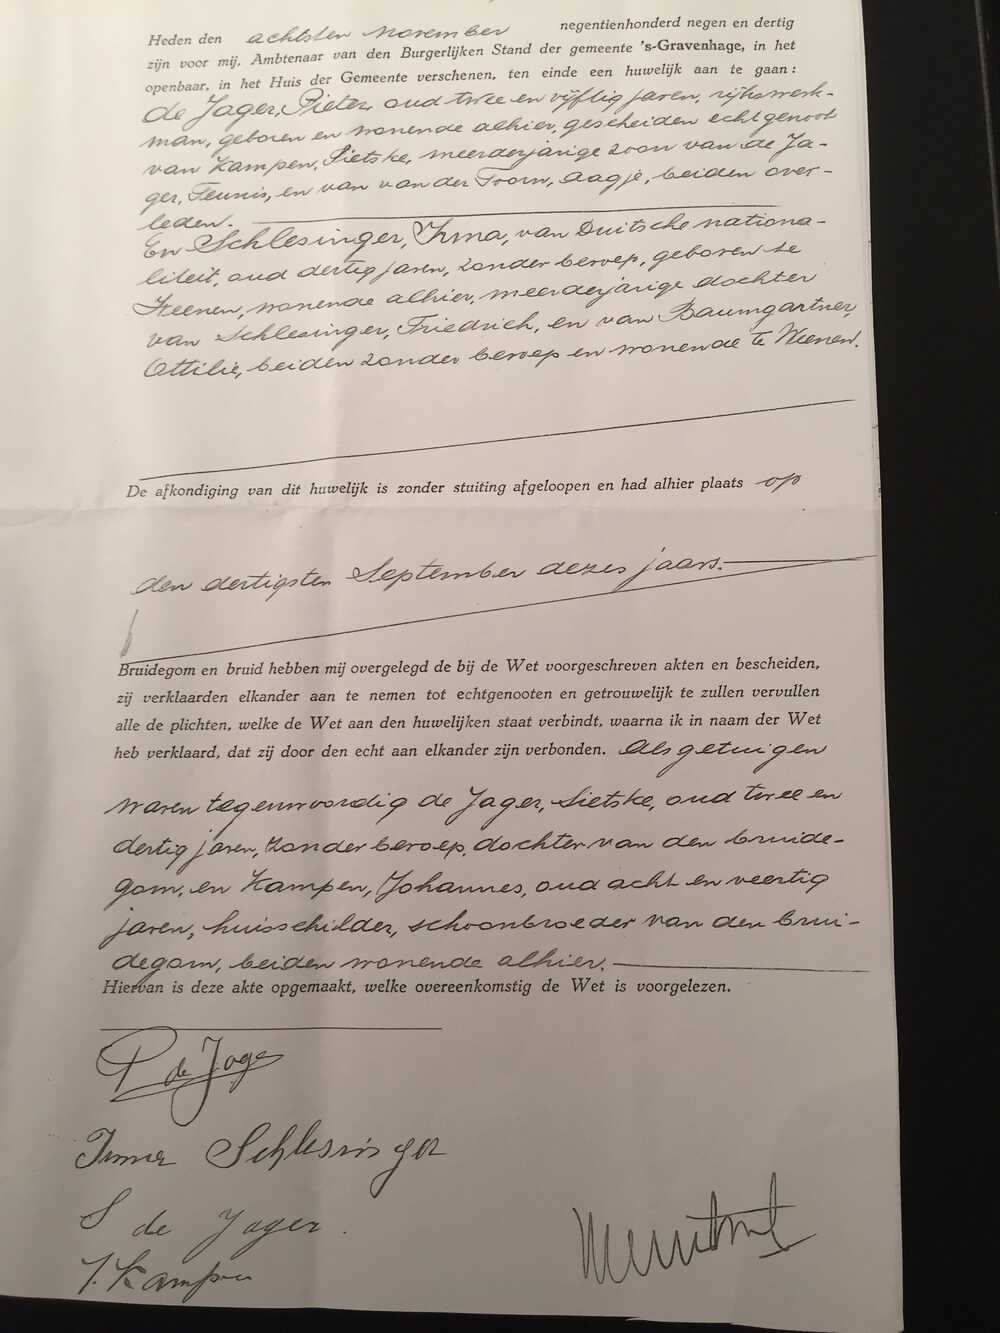 Heden den achtsten November negentienhonderd negen en dertig
zijn voor mij, Ambtenaar van den Burgerlijken Stand der gemeente 's-Gravenhage, in het
openbaar, in het Huis der Gemeente verschenen, ten einde een huwelijk aan te gaan:
de Jager, Pieter, oud twee en vijftig jaren, rijkswerk-
man, geboren en wonende alhier, gescheiden echtgenoot
van Kampen, Sietske, meerderjarige zoon van de Ja-
ger, Teunis, en van van der Toorn, Aagje, beiden over-
leden.
En Schlesinger, Irma, van Duitsche nationa-
liteit, oud dertig jaren, zonder beroep, geboren te
Weenen, wonende alhier, meerderjarige dochter
van Schlesinger, Friedrich, en van Baumgartner,
Ottilie, beiden zonder beroep en wonende te Weenen.
De afkondiging van dit huwelijk is zonder stuiting afgeloopen en had alhier plaats op
den dertigsten September dezes jaars.
Bruidegom en bruid hebben mij overgelegd de bij de Wet voorgeschreven akten en bescheiden,
zij verklaarden elkander aan te nemen tot echtgenooten en getrouwelijk te zullen vervullen
alle de plichten, welke de Wet aan den huwelijken staat verbindt, waarna ik in naam der Wet
heb verklaard, dat zij door den echt aan elkander zijn verbonden. Als getuigen
waren tegenwoordig de Jager, Sietske, oud twee en
dertig jaren, zonder beroep, dochter van den bruide-
gom, en Kampen, Johannes, oud acht en veertig
jaren, huisschilder, schoonbroeder van den brui-
degom, beiden wonende alhier.
Hiervan is deze akte opgemaakt, welke overeenkomstig de Wet is voorgelezen.
P de Jager
Irma Schlesinger
S de Jager.
J. Kampen